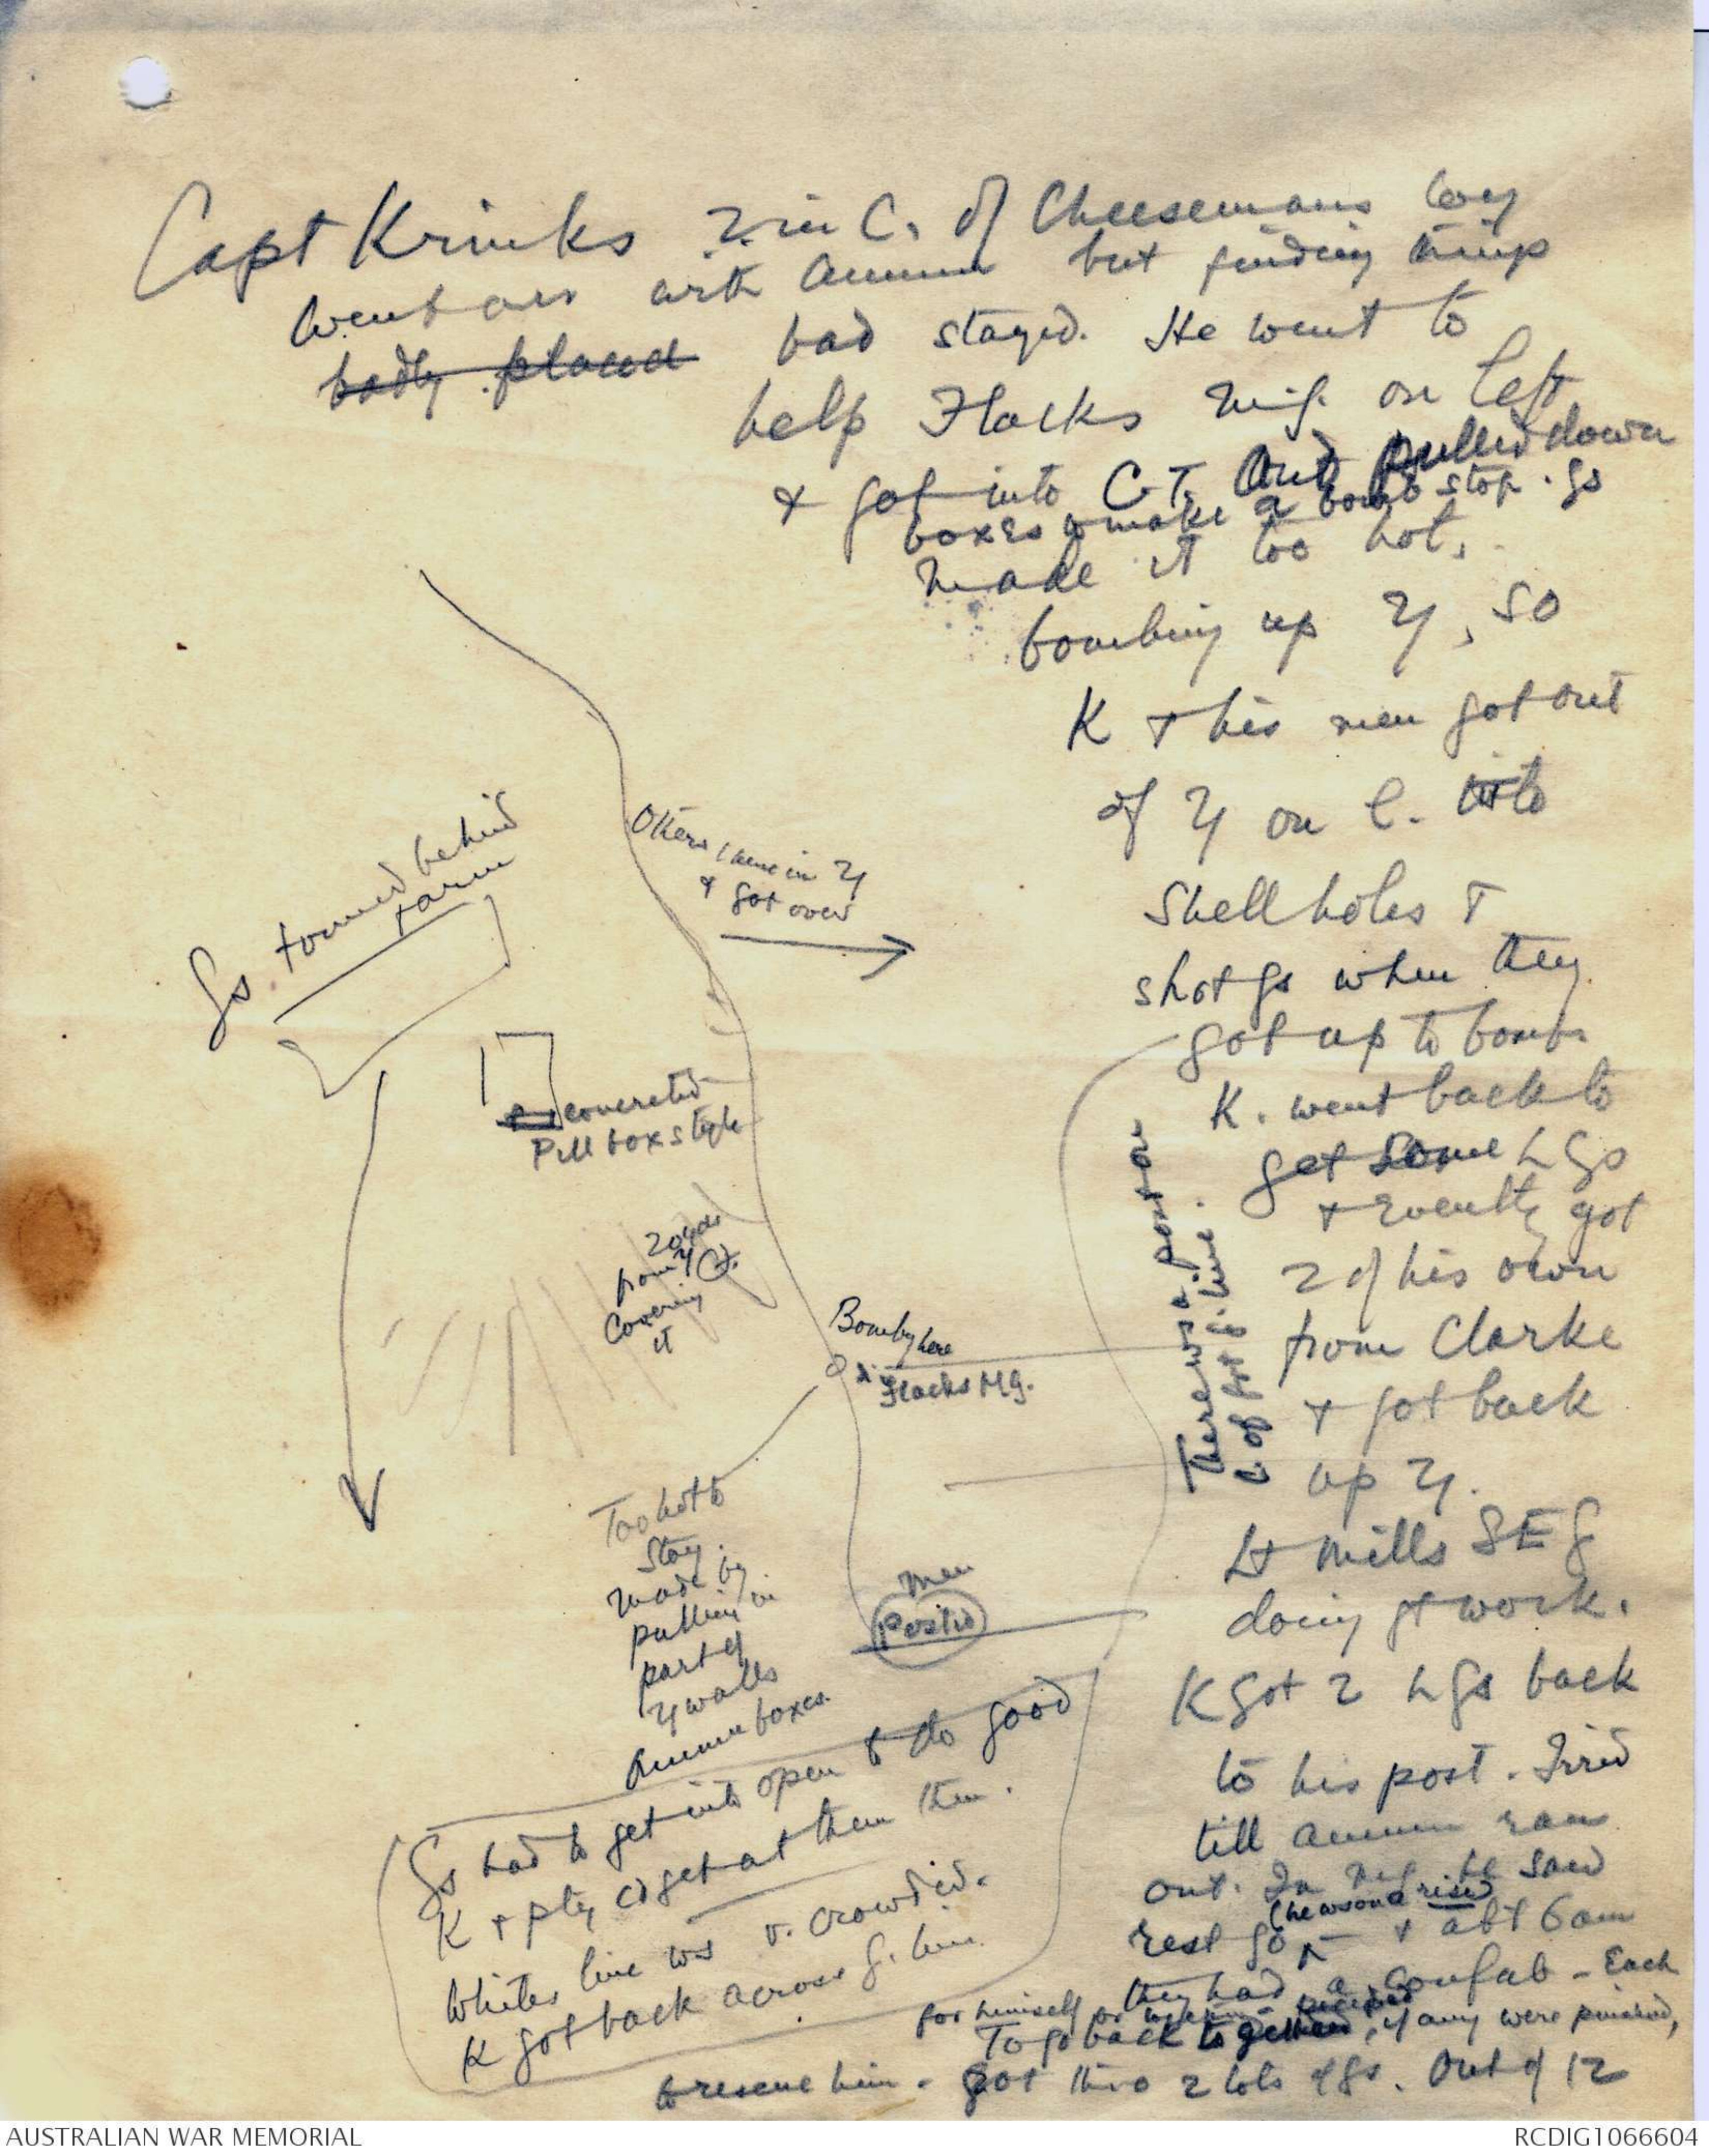 Capt Krinks 2 in C. of Cheesemans Coy
went over with ammn but finding things
badly placed bad stayed. He went to
help Flacks m.g. on left
& got into C.T. And pulled down
boxes to make a bomb stop. Gs
made it too hot,
bombing up
so
K & his men got out
of
on l. into
Shell holes &
shot Gs when they
got up to bomb.
K. went back to
get some L Gs
& evently got
2 of his own
from Clarke
& got back
up
Lt Mills SEG
doing gt work.
K got 2 L Gs back
to his post. Fired
till ammn ran
out. In
he saw
(he was on a rise)
rest go & abt 6 am
they had a confab - Each
for himself or
To go back together, if any were pinched,
to rescue him. Got thro 2 lots of Gs. Out of 12
Gs. formed behind
farm
Others came in
& got over
concreted
Pill box style
20 yds
from
Covering
it
Bomby here
Flacks M.g.
There was a post on
L of frt G. line.
Too hot to
Stay.
made by
pulling in
part of
walls
Ammn boxes.
men
Gs had to get into open to do good
K & pty cd get at them then.
Whites line ws v. crowded.
K got back across G. line.
AUSTRALIAN WAR MEMORIAL
RCDIG1066604